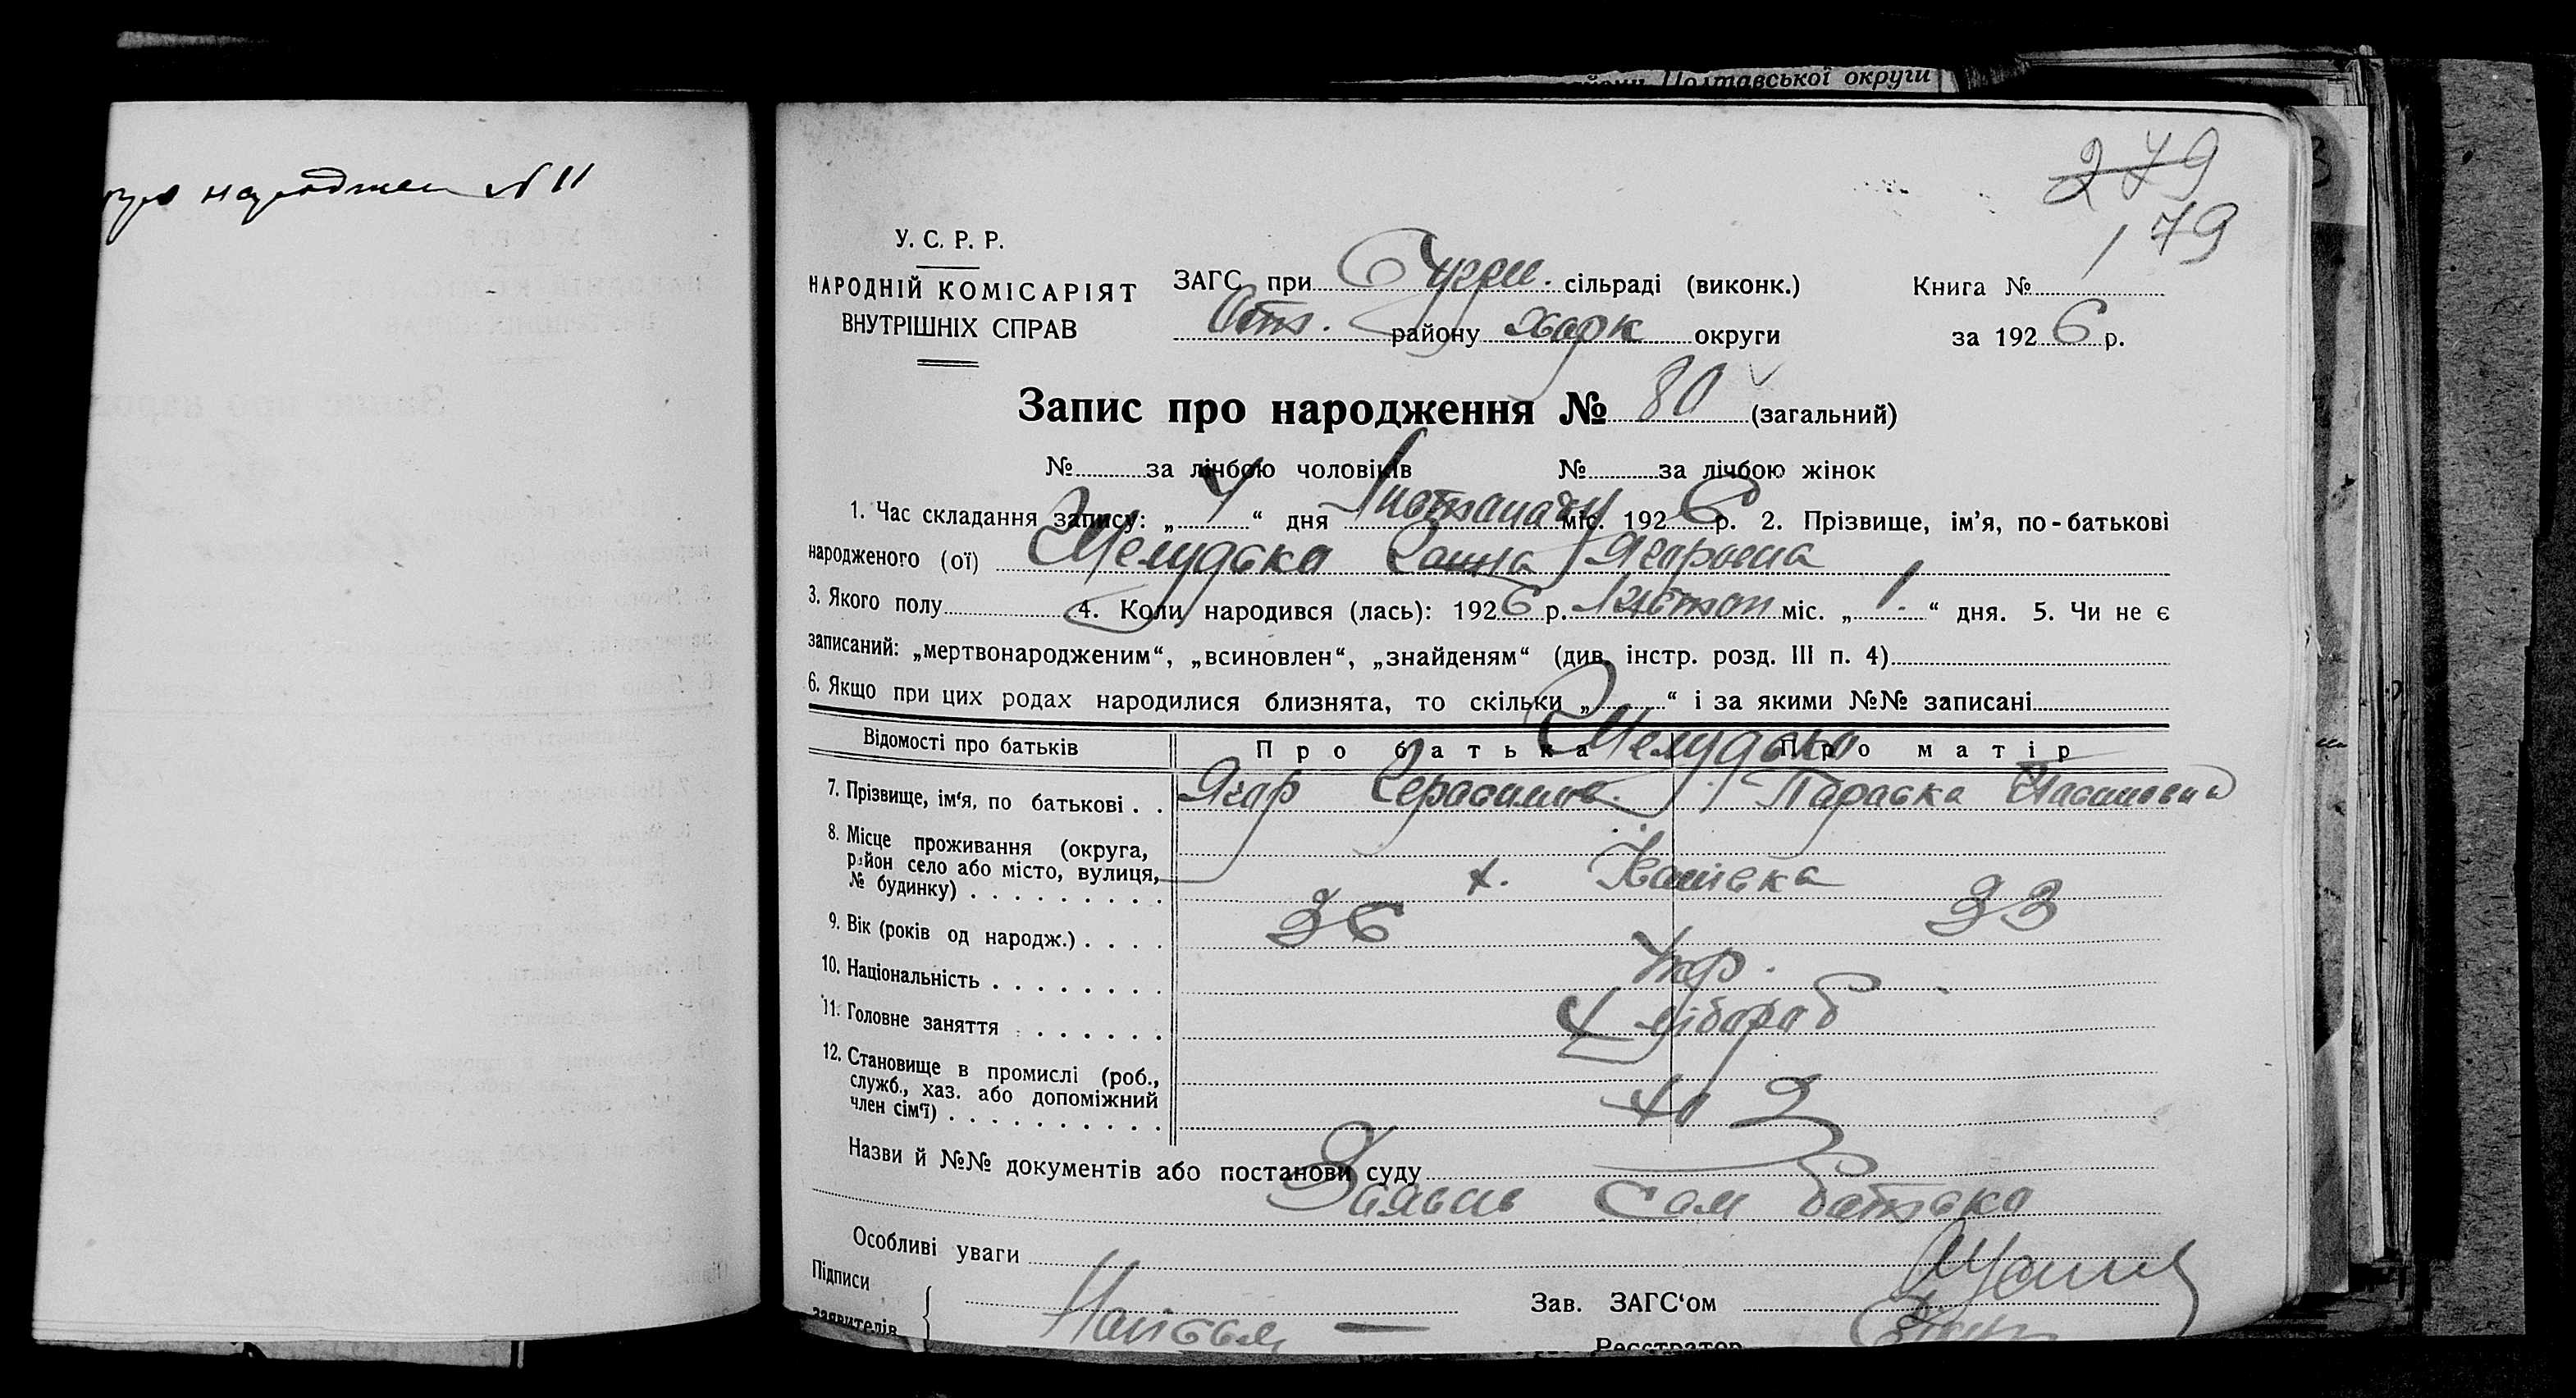 Полтавської округи
народжен №11
279
179
У. С. Р. Р.
НАРОДНІЙ КОМІСАРІЯТ
ВНУТРІШНІХ СПРАВ
ЗАГС при сільраді (виконк.)
району Харк округи
Книга №
за 1926 р.
Запис про народження № 80 (загальний)
№ за лічбою чоловіків № за лічбою жінок
1. Час складання запису: „ 4 “ дня Листопаду міс. 1926 р. 2. Прізвище, ім’я, по-батькові
народженого (ої) Ягоровна
3. Якого полу 4. Коли народився (лась): 1926 р. Листоп міс. „ 1 “ дня. 5. Чи не є
записаний: „мертвонародженим“, „всиновлен“, „знайденям“ (див. інстр. розд. III п. 4)
6. Якщо при цих родах народилися близнята, то скільки „ “ і за якими №№ записані
Відомості про батьків Про батька Про матір
7. Прізвище, ім‘я, по батькові . . Ягор Параска
8. Місце проживання (округа,
район село або місто, вулиця,
№ будинку) х.
9. Вік (років од народж.) . . . . 36 33
10. Національність Укр.
11. Головне заняття Хлібороб
12. Становище в промислі (роб.,
служб., хаз. або допоміжний
член сім‘ї)
Назви й №№ документів або постанови суду
Заявив Сам батько
Особливі уваги
Підписи
заявителів
Зав. ЗАГС‘ом
Реєстратор